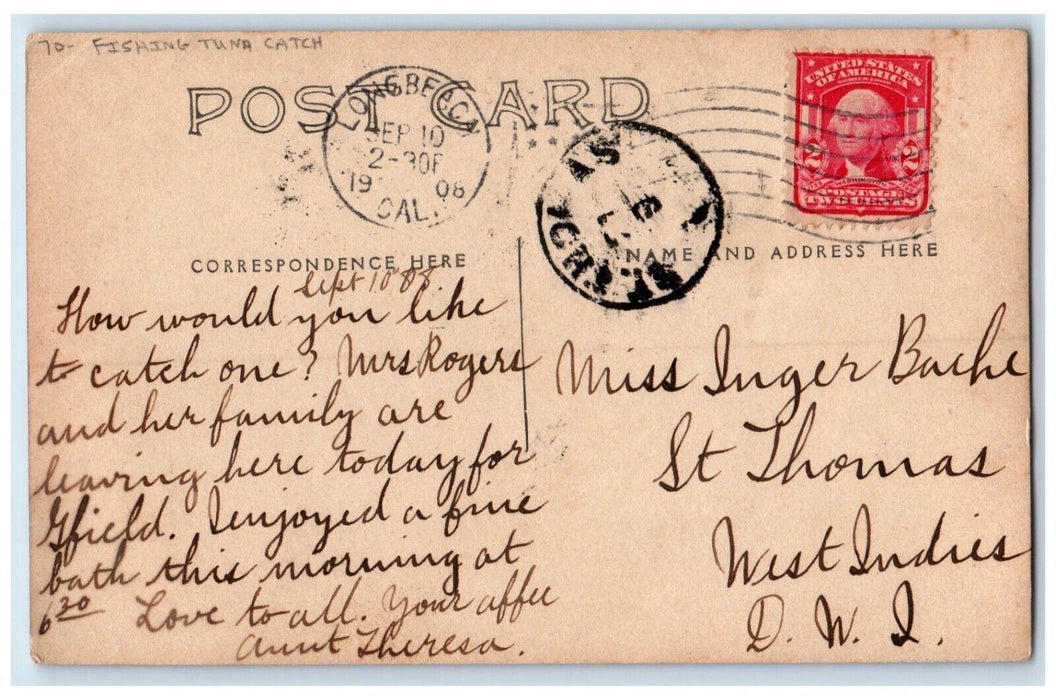 70- FISHING TUNA CATCH
POST CARD
LONG BEACH
SEP 10
2-30P
1908
CAL.
UNITED STATES
OF AMERICA
SERIES 1902
2 2
WASHINGTON
POSTAGE
TWO CENTS
CORRESPONDENCE HERE
NAME AND ADDRESS HERE
Sept 10 '08.
How would you like
to catch one? Mrs Rogers
and her family are
leaving here today for
Gfield. I enjoyed a fine
bath this morning at
6 30 Love to all. Your affec
Aunt Theresa.
Miss Inger Bache
St Thomas
West Indies
D. W. I.